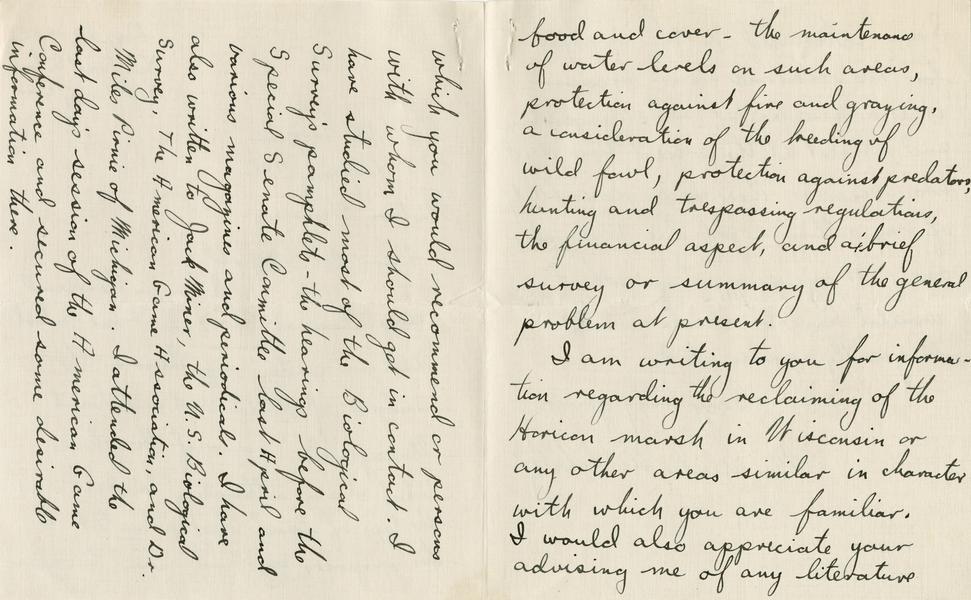 food and cover - the maintenance
of water levels on such areas,
protection against fire and grazing,
a consideration of the breeding of
wild fowl, protection against predators,
hunting and trespassing regulations,
the financial aspect, and a brief
survey or summary of the general
problem at present.
I am writing to you for informa-
tion regarding the reclaiming of the
Horicon marsh in Wisconsin or
any other areas similar in character
with which you are familiar.
I would also appreciate your
advising me of any literature
which you would recommend or persons
with whom I should get in contact. I
have studied most of the Biological
Survey's pamphlets - the hearings before the
Special Senate Committee last April and
various magazines and periodicals. I have
also written to Jack Miner, the U.S. Biological
Survey, The American Game Association, and Dr.
Miles Pirnie of Michigan. I attended the
last day's session of the American Game
Conference and secured some desirable
information there.